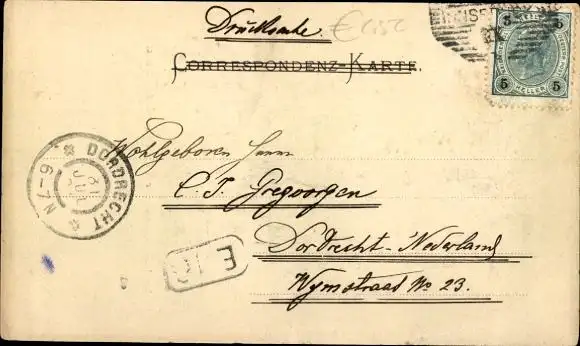 Drucksache
CORRESPONDENZ-KARTE.
5 5
HELLER
5 5
Wohlgeboren Herrn
C. J. Gregoorgen
Dordrecht-Nederland
Wijnstraat No 23.
DORDRECHT
6-7N